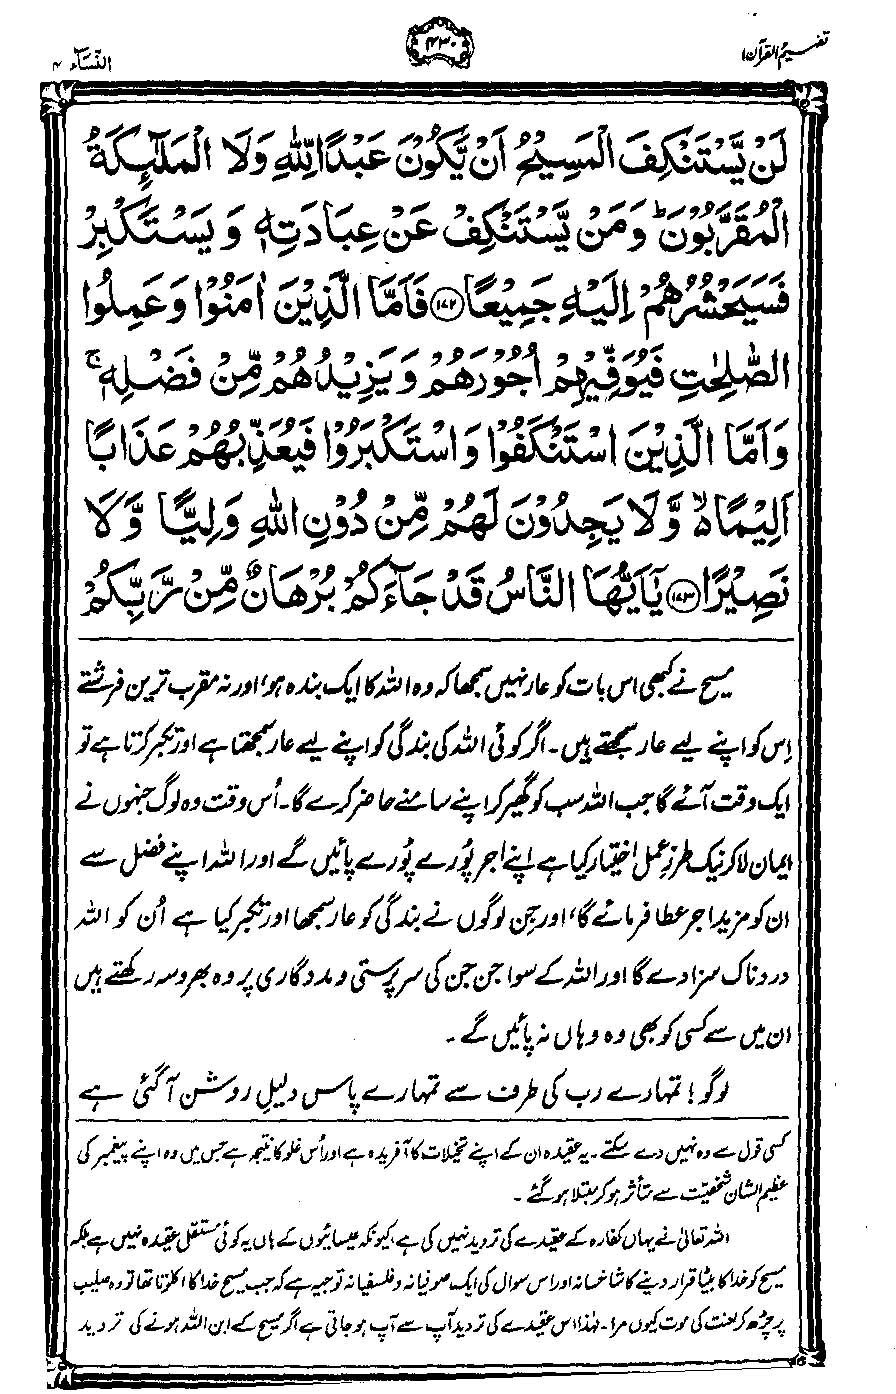 تفہیم القرآن ۱
۴۳۰
النسآء ۴
لَنْ يَّسْتَنْكِفَ الْمَسِيْحُ اَنْ يَّكُوْنَ عَبْدًا لِّلّٰهِ وَلَا الْمَلٰٓئِكَةُ
الْمُقَرَّبُوْنَ ؕ وَمَنْ يَّسْتَنْكِفْ عَنْ عِبَادَتِهٖ وَيَسْتَكْبِرْ
فَسَيَحْشُرُهُمْ اِلَيْهِ جَمِيْعًا ﴿۱۷۲﴾ فَاَمَّا الَّذِيْنَ اٰمَنُوْا وَعَمِلُوا
الصّٰلِحٰتِ فَيُوَفِّيْهِمْ اُجُوْرَهُمْ وَيَزِيْدُهُمْ مِّنْ فَضْلِهٖ ۚ
وَاَمَّا الَّذِيْنَ اسْتَنْكَفُوْا وَاسْتَكْبَرُوْا فَيُعَذِّبُهُمْ عَذَابًا
اَلِيْمًا ۙ۬ وَّلَا يَجِدُوْنَ لَهُمْ مِّنْ دُوْنِ اللّٰهِ وَلِيًّا وَّلَا
نَصِيْرًا ﴿۱۷۳﴾ يٰۤاَيُّهَا النَّاسُ قَدْ جَآءَكُمْ بُرْهَانٌ مِّنْ رَّبِّكُمْ
مسیح نے کبھی اس بات کو عار نہیں سمجھا کہ وہ اللہ کا ایک بندہ ہو، اور نہ مقرب ترین فرشتے
اِس کو اپنے لیے عار سمجھتے ہیں۔ اگر کوئی اللہ کی بندگی کو اپنے لیے عار سمجھتا ہے اور تکبر کرتا ہے تو
ایک وقت آئے گا جب اللہ سب کو گھیر کر اپنے سامنے حاضر کرے گا۔ اُس وقت وہ لوگ جنہوں نے
ایمان لا کر نیک طرزِ عمل اختیار کیا ہے اپنے اجر پورے پورے پائیں گے اور اللہ اپنے فضل سے
ان کو مزید اجر عطا فرمائے گا، اور جن لوگوں نے بندگی کو عار سمجھا اور تکبر کیا ہے اُن کو اللہ
دردناک سزا دے گا اور اللہ کے سوا جن جن کی سرپرستی و مددگاری پر وہ بھروسہ رکھتے ہیں
ان میں سے کسی کو بھی وہ وہاں نہ پائیں گے۔
لوگو! تمہارے رب کی طرف سے تمہارے پاس دلیلِ روشن آگئی ہے
کسی قول سے وہ نہیں دے سکتے۔ یہ عقیدہ ان کے اپنے تخیلات کا آفریدہ ہے اور اُس غلو کا نتیجہ ہے جس میں وہ اپنے پیغمبر کی
عظیم الشان شخصیت سے متاثر ہو کر مبتلا ہو گئے۔
اللہ تعالیٰ نے یہاں کفارہ کے عقیدے کی تردید نہیں کی ہے، کیونکہ عیسائیوں کے ہاں یہ کوئی مستقل عقیدہ نہیں ہے بلکہ
مسیح کو خدا کا بیٹا قرار دینے کا شاخسانہ اور اس سوال کی ایک صوفیانہ و فلسفیانہ توجیہ ہے کہ جب مسیح خدا کا اکلوتا تھا تو وہ صلیب
پر چڑھ کر لعنت کی موت کیوں مرا۔ لہٰذا اس عقیدے کی تردید آپ سے آپ ہو جاتی ہے اگر مسیح کے ابن اللہ ہونے کی تردید